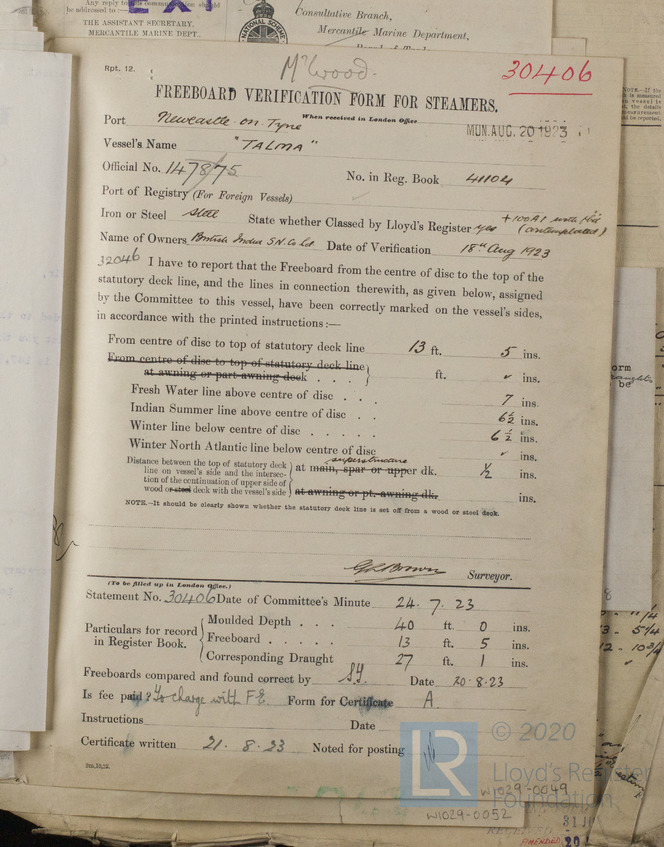 Any reply to this communication should
be addressed to—
THE ASSISTANT SECRETARY,
MERCANTILE MARINE DEPT.
Consultative Branch,
Mercantile Marine Department,
Rpt. 12.
Mr Wood.
30406
FREEBOARD VERIFICATION FORM FOR STEAMERS.
Port Newcastle-on-Tyne When received in London Office MON. AUG. 20 1923
Vessel's Name "TALMA"
Official No. 147875 No. in Reg. Book 41104
Port of Registry (For Foreign Vessels)
Iron or Steel Steel State whether Classed by Lloyd's Register yes +100A1 with fbd (contemplated)
Name of Owners British India S.N. Co Ld Date of Verification 18th Aug 1923
32046 I have to report that the Freeboard from the centre of disc to the top of the
statutory deck line, and the lines in connection therewith, as given below, assigned
by the Committee to this vessel, have been correctly marked on the vessel's sides,
in accordance with the printed instructions:—
From centre of disc to top of statutory deck line 13 ft. 5 ins.
From centre of disc to top of statutory deck line
at awning or part awning deck . . . ft. ✓ ins.
Fresh Water line above centre of disc . . . 7 ins.
Indian Summer line above centre of disc . . 6½ ins.
Winter line below centre of disc . . . . . 6½ ins.
Winter North Atlantic line below centre of disc ✓ ins.
Distance between the top of statutory deck
line on vessel's side and the intersec-
tion of the continuation of upper side of
wood or steel deck with the vessel's side
superstructure
at main, spar or upper dk. ½ ins.
at awning or pt. awning dk. ins.
NOTE.—It should be clearly shown whether the statutory deck line is set off from a wood or steel deck.
Surveyor.
(To be filled up in London Office.)
Statement No. 30406 Date of Committee's Minute 24. 7. 23
Particulars for record
in Register Book.
Moulded Depth . . . 40 ft. 0 ins.
Freeboard . . . . . 13 ft. 5 ins.
Corresponding Draught 27 ft. 1 ins.
Freeboards compared and found correct by Date 20.8.23
Is fee paid? To charge with F.E. Form for Certificate A.
Instructions Date
Certificate written 21. 8. 23 Noted for posting
LR © 2020
Lloyd's Register
Foundation
W1029-0049
W1029-0052
AMENDED